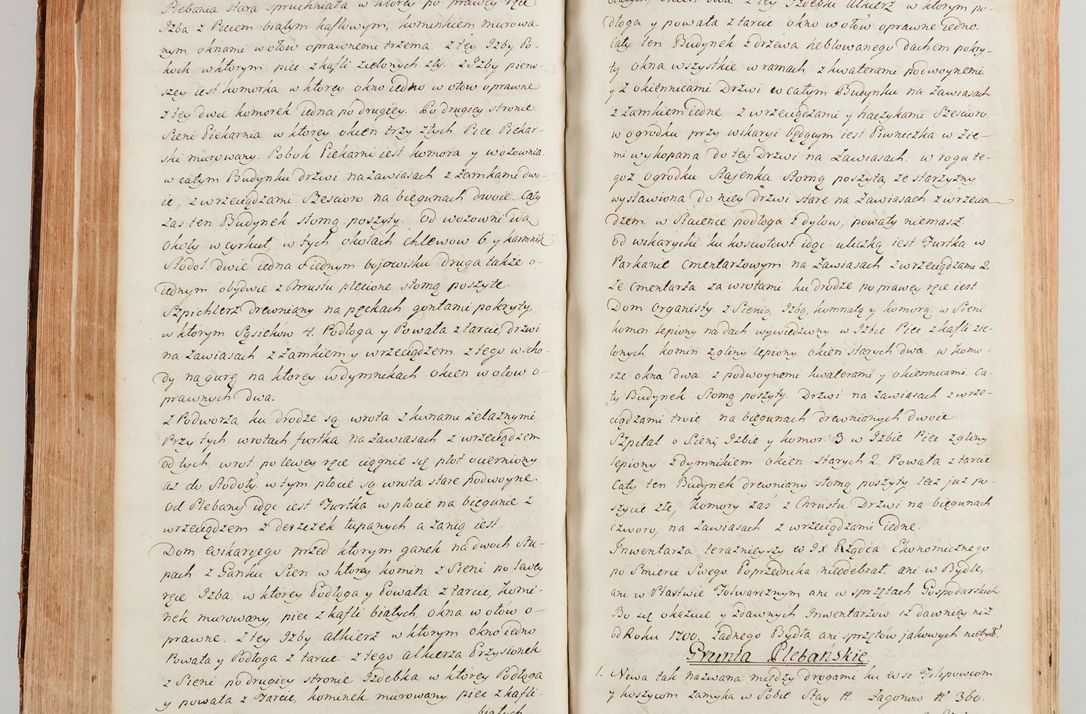 Plebania stara spruchniała w ktorey po prawey ręce
Izba z Piecem białym kaflowym, kominkiem murowa-
nym oknami w ołow oprawnemi trzema. z tey Izby Po-
koik w ktorym piec z kafli zielonych zły. z Izby pierw-
szey iest komorka w ktorey okno iedno w ołow oprawne
z tey dwie komorek iedna po drugiey. Po drugiey stronie
Sieni Piekarnia w ktorey okien trzy złych Piec Piekar-
ski murowany. Pobok Piekarni iest komora y wozownia
w całym Budynku drzwi na zawiasach z zamkami dwo-
ie, z wrzeciądzami Szescioro na biegunach dwoie. Cały
zas ten Budynek słomą poszyty. Od wozowni idą
Okoły w cyrkuł, w tych okołach chlewow 6. y karmnik
Stodoł dwie iedna o iednym bojowisku druga także o
iednym obydwie z chrustu plecione słomą poszyte.
Szpichlerz drewniany na pęckach gontami pokryty,
w ktorym Sąsiekow 4. Podłoga y Powała z tarcic, drzwi
na zawiasach z zamkiem y wrzeciądzem z tego wscho-
dy na gurę na ktorey w dymnikach okien w ołow o-
prawnych dwa.
Z Podworza ku drodze są wrota z kunami żelaznymi
Przy tych wrotach furtka na zawiasach z wrzeciądzem
od tych wrot po lewey ręce ciągnie się płot ocierniony
aż do Stodoły w tym płocie są wrota stare podwoyne.
Od Plebanij idąc iest Furtka w płocie na biegunie z
wrzeciądzem z derzezek łupanych a za nią iest.
Dom Wikaryego przed ktorym ganek na dwoch słu-
pach z Ganku Sien w ktorey komin z Sieni po lewey
ręce Izba w ktorey Podłoga y Powała z tarcic, komi-
nek murowany, piec z kafli białych okna w ołow o-
prawne. z tey Izby alkierz w ktorym okno iedno
Powała y Podłoga z tarcic. z tego alkierza Przysionek
z Sieni po drugiey stronie Izdebka w ktorey Podłoga
y powała z Tarcic, kominek murowany piec z kafli
białych
białych, okien dwa z tey Izdebki Alkierz w ktorym po-
dłoga y powała z tarcic okno w ołow oprawne iedno.
Cały ten Budynek z drzewa heblowanego dachem pokry-
ty okna wszystkie w ramach z kwaterami podwoynemi
y z okiennicami Drzwi w całym Budynku na zawiasach
z zamkiem iedne, z wrzeciądzami y haczykami Szescioro.
w ogrodku przy wikaryi będącym iest Piwniczka w Zie-
mi wykopana do tey Drzwi na Zawiasach. w rogu te-
goż Ogrodku Stajenka Słomą poszyta, ze starzyzny
wystawiona do niey drzwi stare na Zawiasach z wrzecią-
dzem. w Staience podłoga z dylow, powały niemasz.
Od wikaryiki ku kosciołowi idąc uliczką iest Furtka w
Parkanie Cmentarzowym na Zawiasach z wrzeciądzami 2.
Ze Cmentarza za wrotami ku drodze po prawey ręce iest
Dom Organisty z Sienią, Izbą, komnatą y komorą, w Sieni
komin lepiony na dach wywiedziony. w Izbie Piec z kafli zie-
lonych komin z gliny lepiony. Okien starych dwa, w komo-
rze okna dwa z podwoynemi kwaterami y okiennicami. Ca-
ły Budynek Słomą poszyty. Drzwi na zawiasach z wrze-
ciądzami troie na biegunach drewnianych dwoie.
Szpital o Sieni, Izbie y komor 3 w Izbie Piec z gliny
lepiony z dymnikiem okien starych 2. Powała z tarcic
Cały ten Budynek drewniany słomą poszyty lecz już po-
szycie złe, komory zaś z Chrustu. Drzwi na biegunach
czworo, na Zawiasach z wrzeciądzami iedne.
Inwentarza terazniejszy Rządca Ekonomicznego
po Smierci Swego Poprzednika nieodebrał, ani w Bydle,
ani w Ptastwie Folwarcznym ani w sprzętach Gospodarskich
Bo się okazuie z dawnych Inwentarzow iż dawniey niż
od Roku 1700. żadnego Bydła, ani sprzętow jakowych niebyło.
Grunta Plebańskie.
1. Niwa tak nazwana między drogami ku wsi Filipowcom
y koszycom zamyka w Sobie Stay 4. Zagonow No 360.